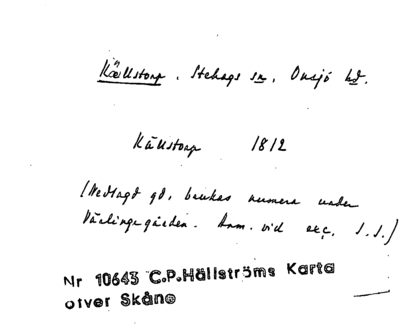 Källstorp, Stehags sn, Onsjö hd.
Källstorp 1812
(Nedlagd gd, brukas numera under
Värlingegården. Anm. vid exc. I.I.)
Nr 10643 C.P.Hällströms Karta
ötver Skåne